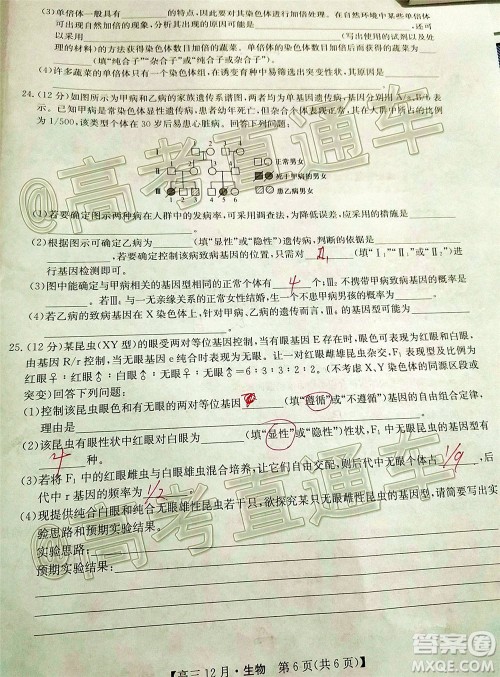 (3)单倍体一般具有________的特点,因此要对其染色体进行加倍处理。在自然环境中某些单倍体
可出现自然加倍的现象,分析其原因是________,还可
以采用________(写出使用的试剂以及处
理的材料)的方法获得染色体数目加倍的蔬菜。单倍体的染色体数目加倍以后所获得的蔬菜为
________(填“纯合子”“杂合子”或“纯合子或杂合子”)。
(4)许多蔬菜的单倍体只有一个染色体组,在诱变育种中易筛选出突变性状,其原因是________
24.(12分)如图所示为甲病和乙病的家族遗传系谱图,两者均为单基因遗传病,基因分别用A/a、B/b表
示。已知甲病是常染色体遗传病,人群中表现正常的个体中含有甲病致病基因的个体所占的比例
为1/500,该类型个体在30岁后易患心脏病。回答下列问题:
正常男女
死于甲病的男女
患乙病男女
(1)若要确定图示两种病在人群中的发病率,可采用调查法,为降低误差,应采取的措施是________
(2)根据图示可确定甲病为________(填“显性”或“隐性”)遗传病,判断的依据是________
________,若需要确定控制该病致病基因的位置,只需要对 Ⅱ₁ (填“Ⅰ₁”“Ⅱ₂”或“Ⅲ₂”)进
行基因检测即可。
(3)图中能确定与甲病基因型相同的正常个体有 4 个;Ⅲ₁不携带甲病致病基因的概率是
________,若Ⅲ₁与一无亲缘关系的正常女性结婚,生一个患甲病孩子的概率为________。
(4)若乙病的致病基因在X染色体上,则图示个体中控制乙病的基因型可确定的有________个。
25.(12分)某昆虫(XY型)的眼受两对等位基因控制,当有眼基因E存在时,眼色可表现为红眼和白眼,
由基因R/r控制,当无眼基因e纯合时代表现为无眼。让一对红眼雌雄昆虫杂交,F₁表现为
红眼♀:红眼♂:白眼♂:无眼♀:无眼♂=6:3:3:2:2。(不考虑X、Y染色体的同源区段或
突变)回答下列问题:
(1)控制该昆虫眼色和有无眼的两对等位基因________(填“遵循”或“不遵循”)基因的自由组合定律,
理由是________。
(2)该昆虫有眼性状中红眼对白眼为________(填“显性”或“隐性”)性状,F₁中无眼雌雄昆虫的基因型共
有 4 种。
(3)若将F₁中的红眼雌虫与无眼雄虫混合培养,让它们自由交配,则后代中无眼个体占 1/9 ,后
代中r基因的频率为 1/2 。
(4)现提供纯合白眼和纯合无眼雄性昆虫若干只,欲探究某只无眼雌性昆虫的基因型,请写出实
验思路和预期实验结果。
实验思路:________
预期实验结果:________
【高三12月·生物 第6页(共6页)】
@高考直通车
@高考直通车